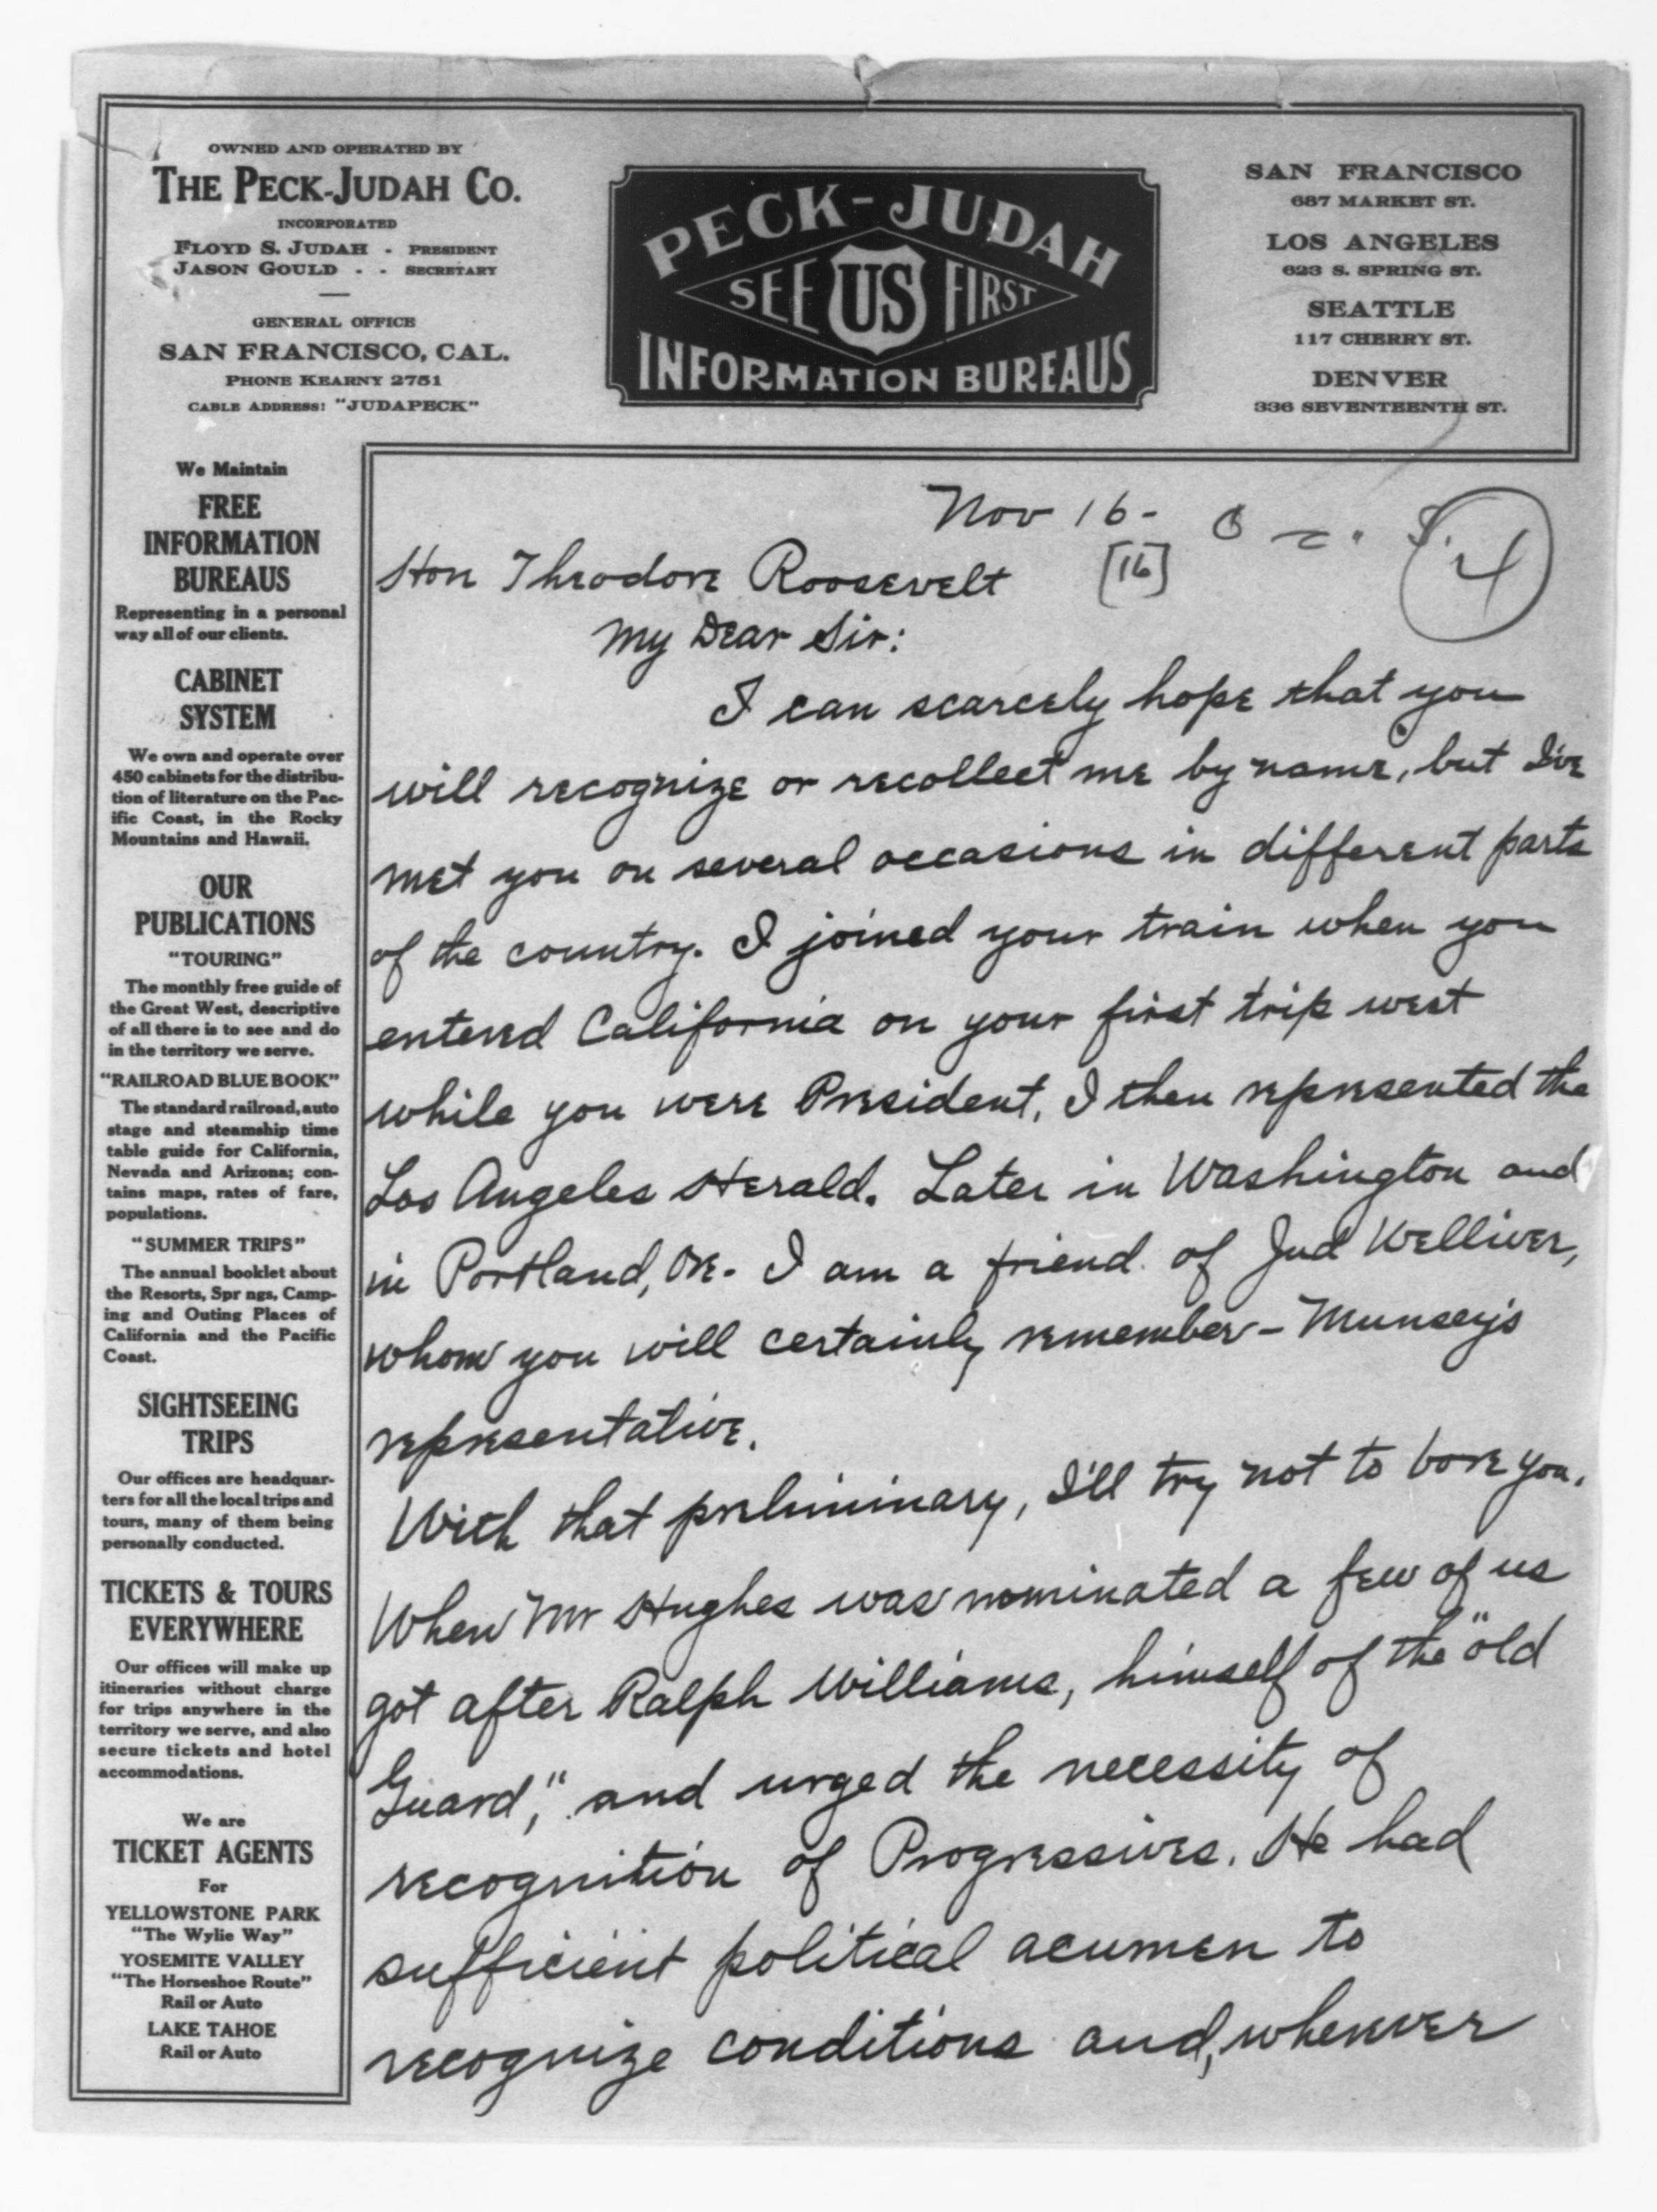 OWNED AND OPERATED BY
THE PECK-JUDAH CO.
INCORPORATED
FLOYD S. JUDAH - PRESIDENT
JASON GOULD - - SECRETARY
GENERAL OFFICE
SAN FRANCISCO, CAL.
PHONE KEARNY 2751
CABLE ADDRESS: "JUDAPECK"
PECK-JUDAH
SEE US FIRST
INFORMATION BUREAUS
SAN FRANCISCO
687 MARKET ST.
LOS ANGELES
623 S. SPRING ST.
SEATTLE
117 CHERRY ST.
DENVER
336 SEVENTEENTH ST.
We Maintain
FREE
INFORMATION
BUREAUS
Representing in a personal
way all of our clients.
CABINET
SYSTEM
We own and operate over
450 cabinets for the distribu-
tion of literature on the Pac-
ific Coast, in the Rocky
Mountains and Hawaii.
OUR
PUBLICATIONS
"TOURING"
The monthly free guide of
the Great West, descriptive
of all there is to see and do
in the territory we serve.
"RAILROAD BLUE BOOK"
The standard railroad, auto
stage and steamship time
table guide for California,
Nevada and Arizona; con-
tains maps, rates of fare,
populations.
"SUMMER TRIPS"
The annual booklet about
the Resorts, Spr ngs, Camp-
ing and Outing Places of
California and the Pacific
Coast.
SIGHTSEEING
TRIPS
Our offices are headquar-
ters for all the local trips and
tours, many of them being
personally conducted.
TICKETS & TOURS
EVERYWHERE
Our offices will make up
itineraries without charge
for trips anywhere in the
territory we serve, and also
secure tickets and hotel
accommodations.
We are
TICKET AGENTS
For
YELLOWSTONE PARK
"The Wylie Way"
YOSEMITE VALLEY
"The Horseshoe Route"
Rail or Auto
LAKE TAHOE
Rail or Auto
Nov 16-
[16]
4
Hon Theodore Roosevelt
My Dear Sir:
I can scarcely hope that you
will recognize or recollect me by name, but I've
met you on several occasions in different parts
of the country. I joined your train when you
entered California on your first trip west
while you were President. I then represented the
Los Angeles Herald. Later in Washington and
in Portland, Ore. I am a friend of Jud Welliver,
whom you will certainly remember - Munsey's
representative.
With that preliminary, I'll try not to bore you.
When Mr Hughes was nominated a few of us
got after Ralph Williams, himself of the "old
Guard," and urged the necessity of
recognition of Progressives. He had
sufficient political acumen to
recognize conditions and, whenever